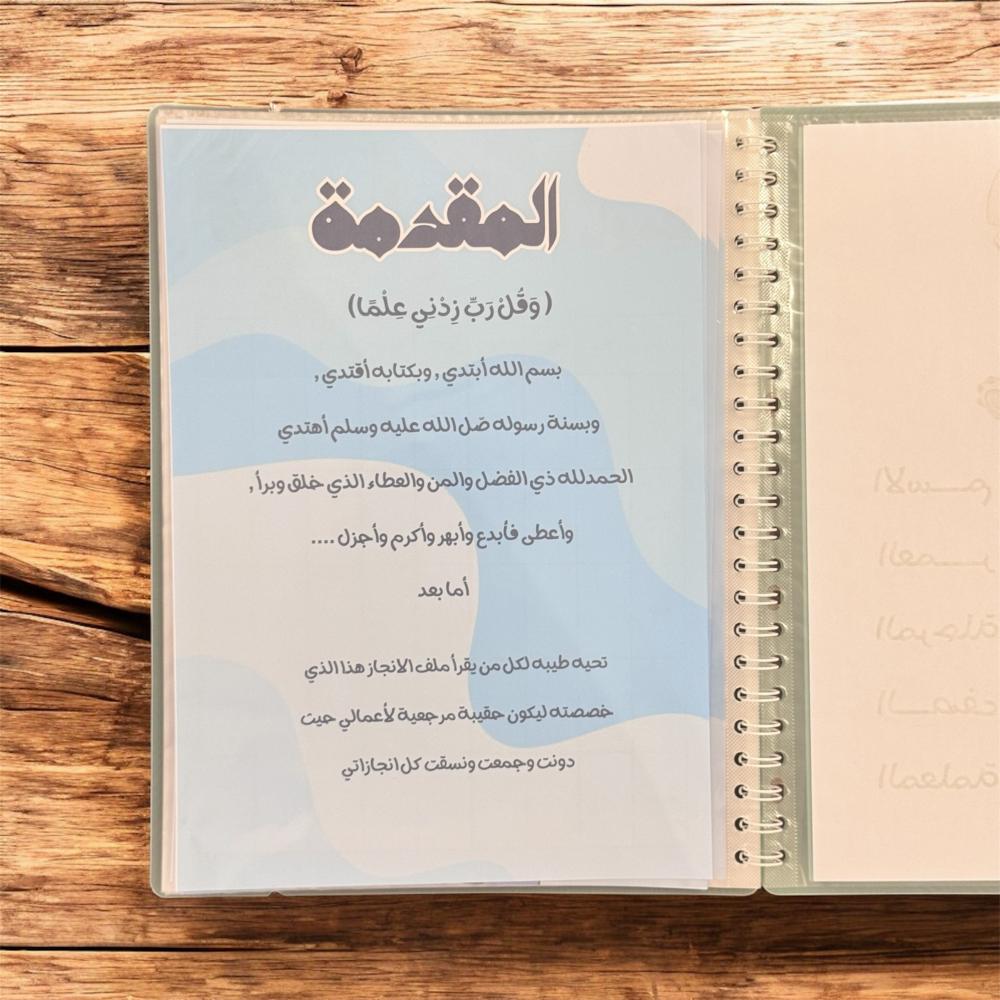 المقدمة
( وَقُلْ رَبِّ زِدْنِي عِلْمًا)
بسم الله أبتدي , وبكتابه أقتدي ,
وبسنة رسوله صّل الله عليه وسلم أهتدي
الحمدلله ذي الفضل والمن والعطاء الذي خلق وبرأ ,
وأعطى فأبدع وأبهر وأكرم وأجزل ....
أما بعد
تحيه طيبه لكل من يقرأ ملف الانجاز هذا الذي
خصصته ليكون حقيبة مرجعية لأعمالي حيث
دونت وجمعت ونسقت كل انجازاتي
الاســـم
العمـــر
المرحلة
الصــف
المعلمة